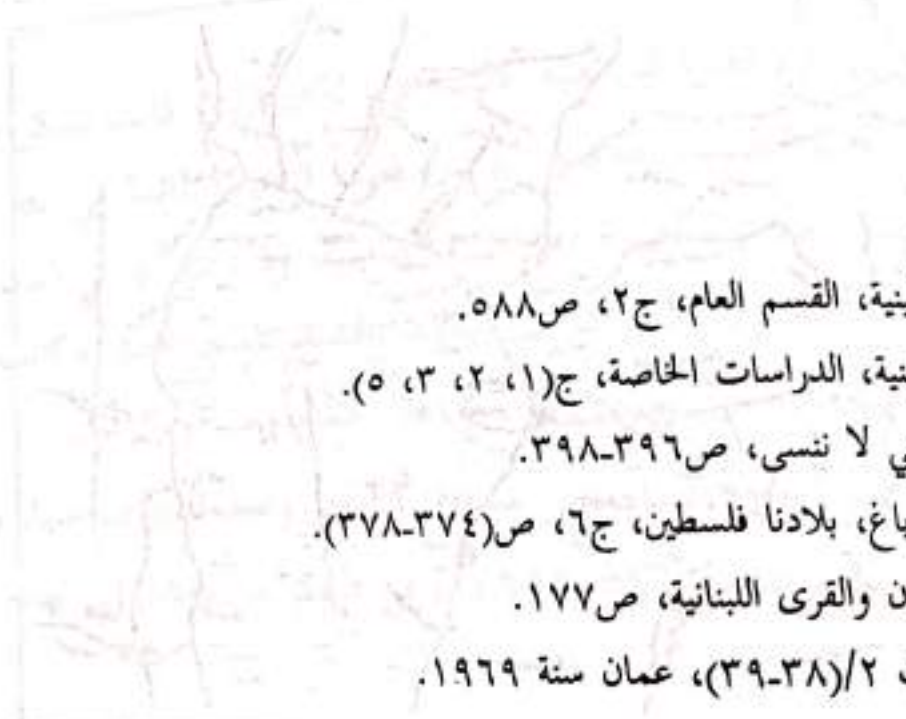 ينية، القسم العام، ج٢، ص٥٨٨.
نية، الدراسات الخاصة، ج(١، ٢، ٣، ٥).
ي لا ننسى، ص٣٩٦-٣٩٨.
باغ، بلادنا فلسطين، ج٦، ص(٣٧٤-٣٧٨).
ن والقرى اللبنانية، ص١٧٧.
٢/(٣٨-٣٩)، عمان سنة ١٩٦٩.